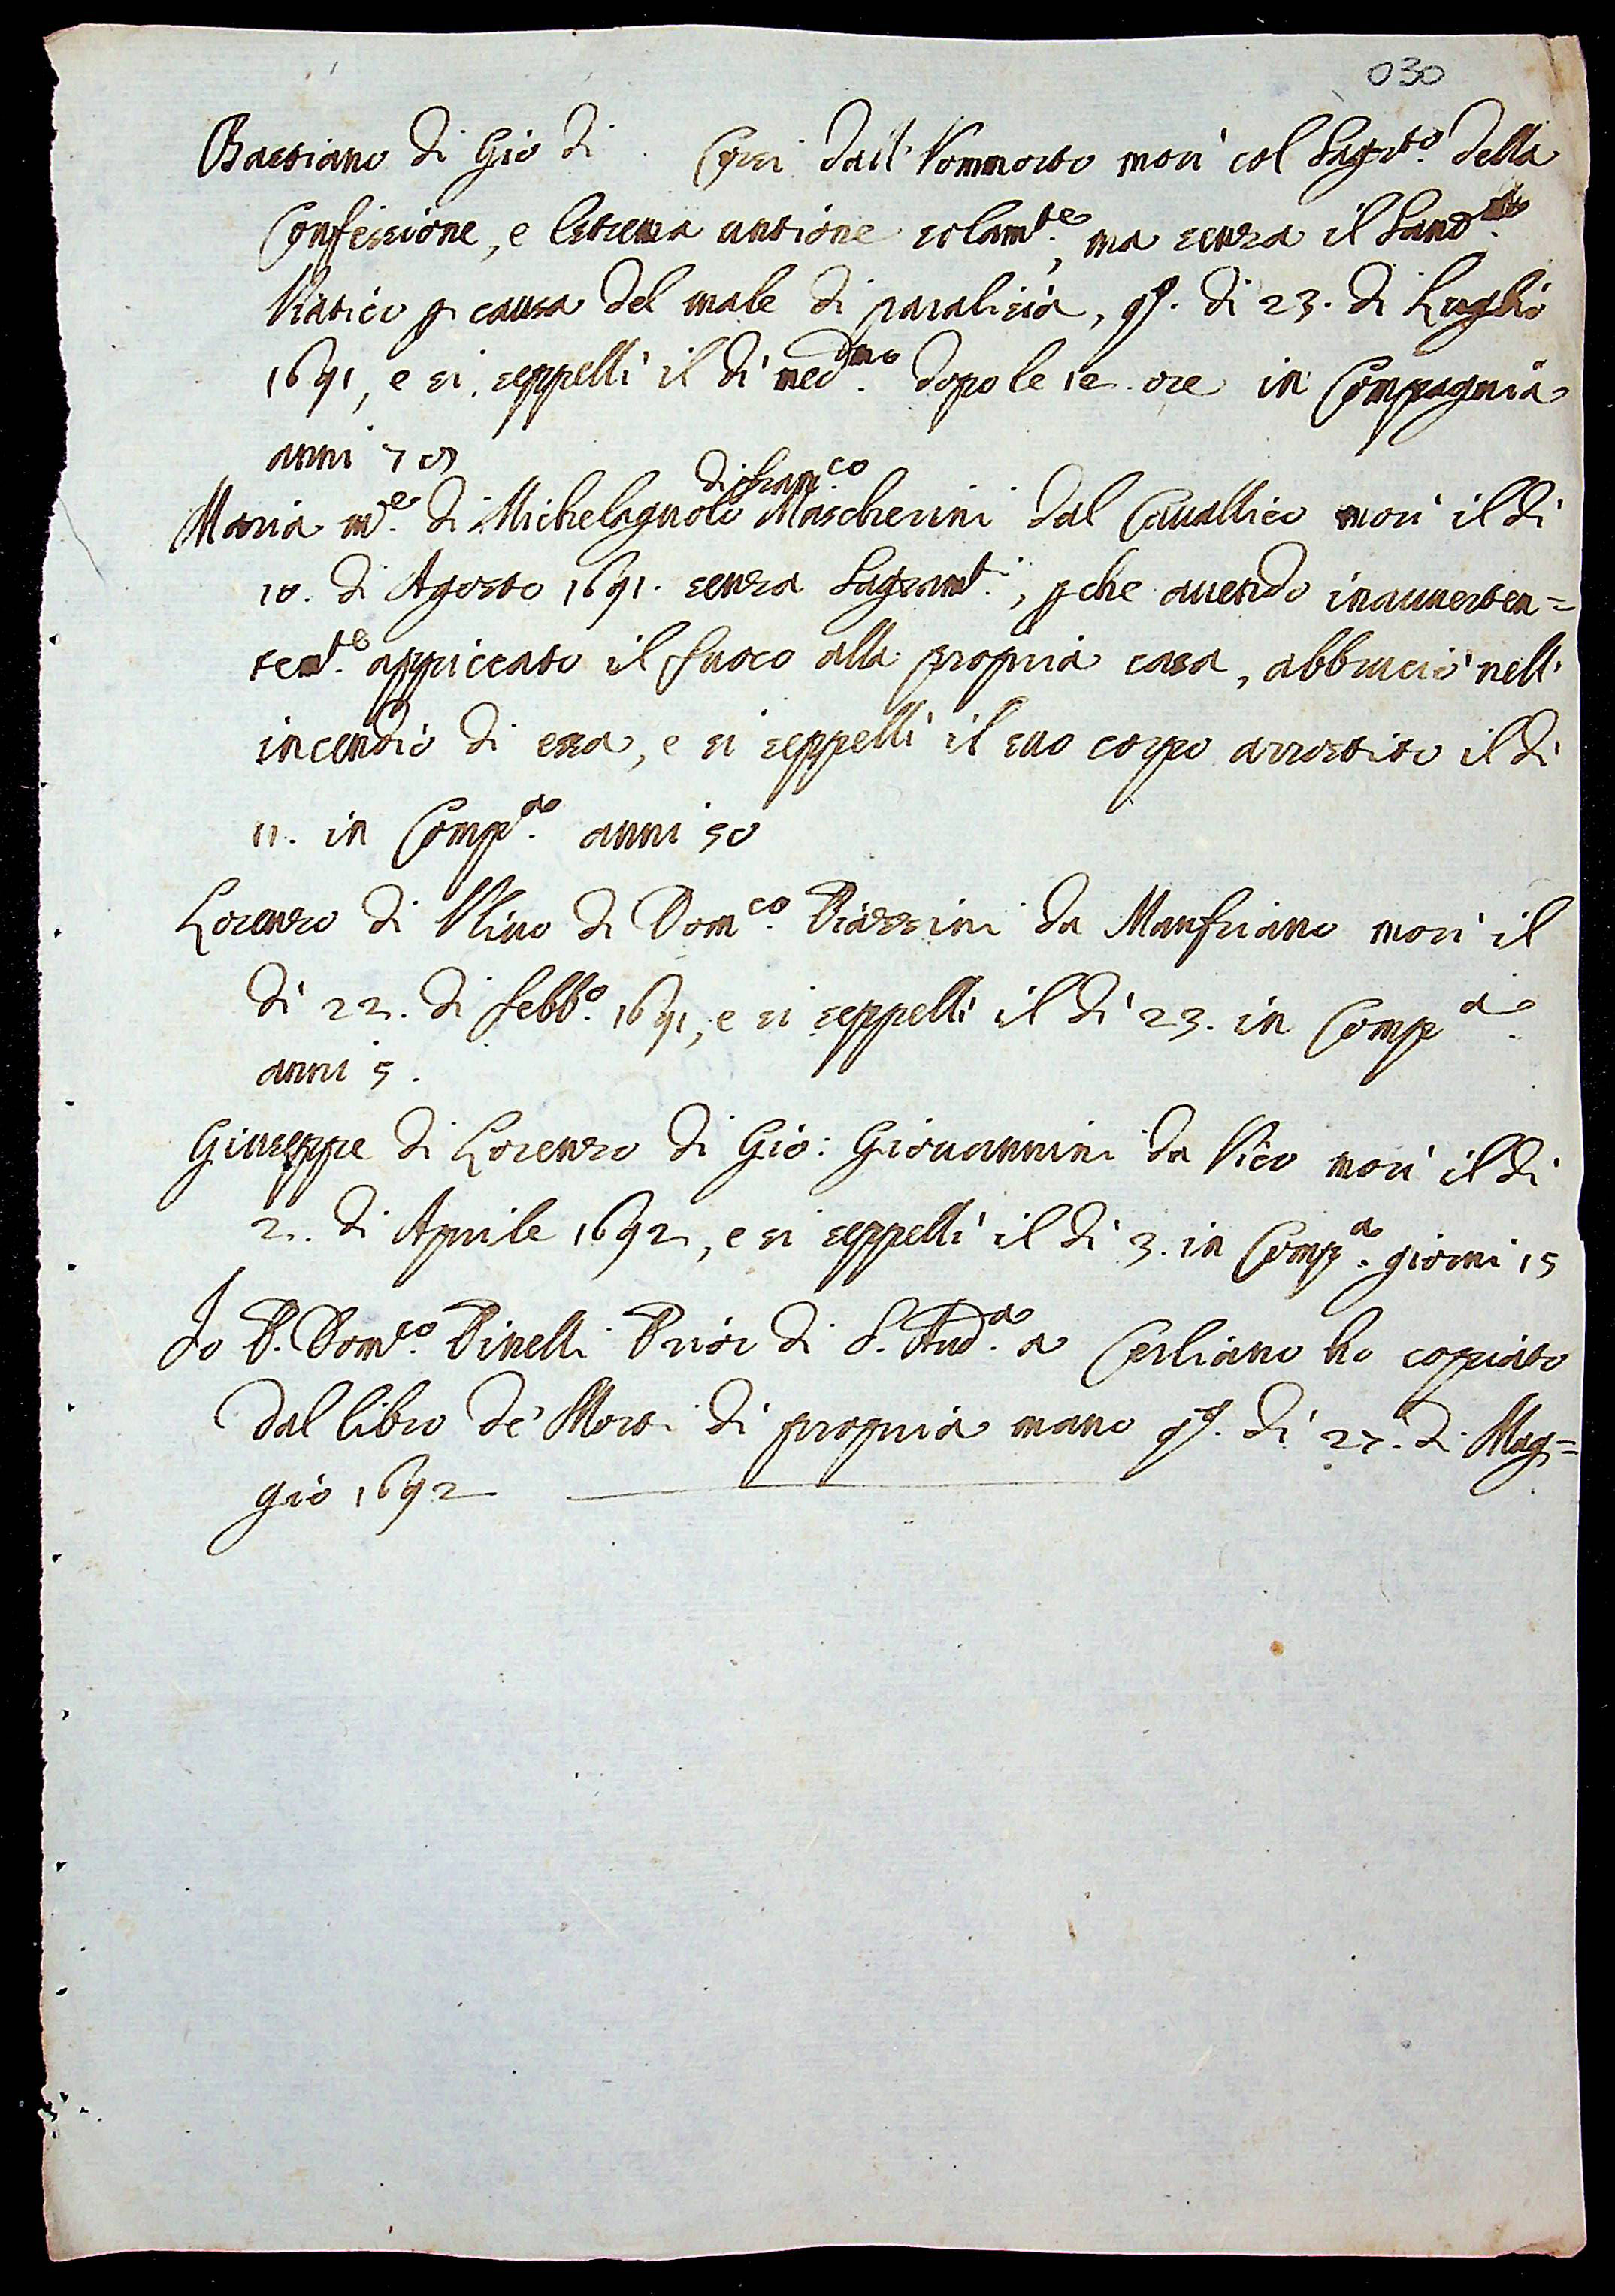 030
Bastiano di Gio di Corsi dall' Vommorto morì col Sagr.to della
Confessione, e Estrema untione solam.te, ma senza il Sant.mo
Viatico p causa del male di paralisia, qs. dì 23. di Luglio
1691, e si seppellì il dì med.mo dopo le ore in Compagnia
anni 70
Maria m.e di Michelagnolo di Fran.co Mascherini dal Cavallico morì il dì
10. di Agosto 1691. senza Sagram.ti, pche avendo inavverten=
tem.te appiccato il fuoco alla propria casa, abbruciò nell'
incendio di essa, e si seppellì il suo corpo arrostito il dì
11. in Comp.a anni 50
Lorenzo di Ulivo di Dom.co Piazzini da Manfriano morì il
dì 22. di Febb.o 1691, e si seppellì il dì 23. in Comp.a
anni 5.
Giuseppe di Lorenzo di Gio: Giovannini da Vico morì il dì
2. di Aprile 1692, e si seppellì il dì 3. in Comp.a giorni 15
Io P. Dom.co Pinelli Prior di S. And.a a Cerliano ho copiato
dal libro de' Morti di propria mano qs. dì 27. di Mag=
gio 1692